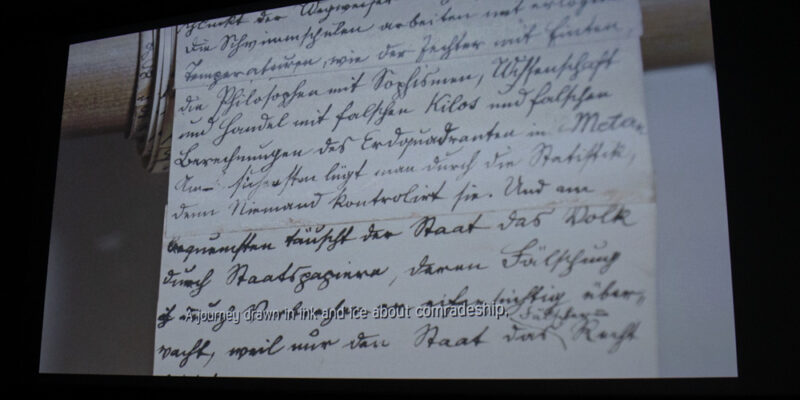 der Wegweiser
die Schwimmschulen arbeiten mit
Temperaturen, wie der Fechter mit Finten,
die Philosophen mit Sophismen, Wissenschaft
und Handel mit falschen Kilos und falschen
Berechnungen des Erdquadranten in
Am sichersten lügt man durch die Statistik,
denn Niemand kontrolirt sie. Und am
bequemsten täuscht der Staat das Volk
durch Staatspapiere, deren Fälschung
über-
A journey drawn in ink and ice about comradeship.
wacht, weil nur den Staat das Recht